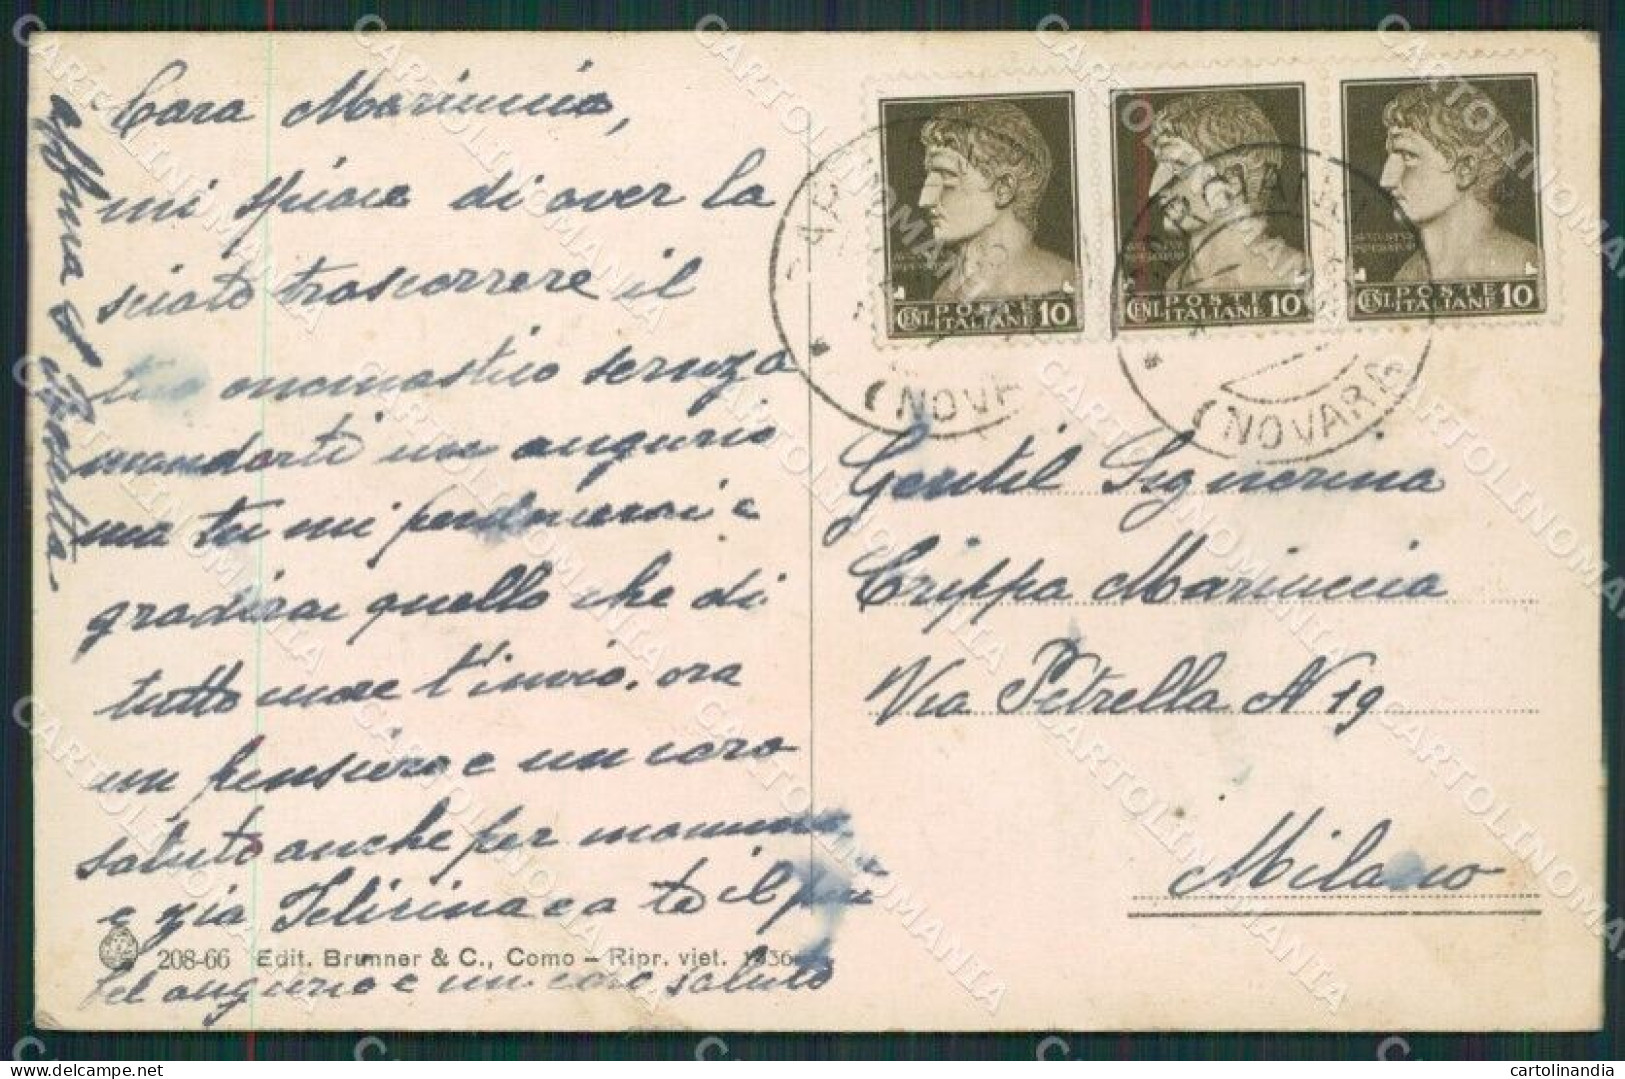 Cara Mariuccia,
mi spiace di aver la
sciato trascorrere il
tuo onomastico senza
mandarti un augurio
ma tu mi perdonerai e
gradirai quello che di
tutto cuore t'invio, ora
un pensiero e un caro
saluto anche per mamma
e zia Felicina e a te il più
bel augurio e un caro saluto
208-66 Edit. Brunner & C., Como - Ripr. viet. 1936
CENT. POSTE ITALIANE 10
CENT. POSTE ITALIANE 10
CENT. POSTE ITALIANE 10
(NOVARA
Gentil Signorina
Crippa Mariuccia
Via Petrella N 19
Milano
CARTOLINOMANIA
cartolinandia